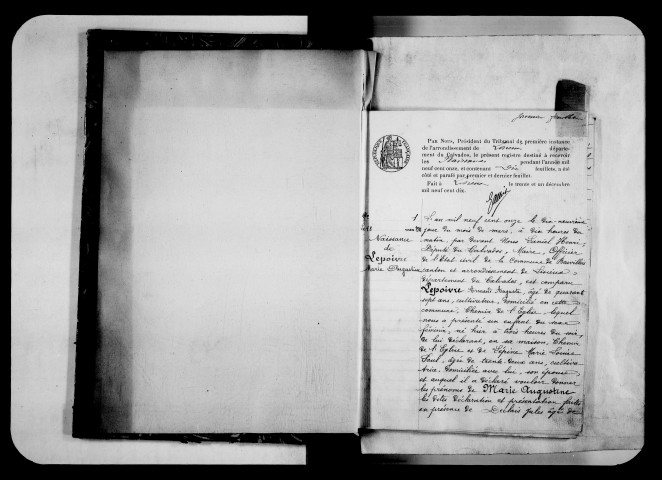 premier feuillet
PAR NOUS, Président du Tribunal de première instance
de l'arrondissement de Lisieux départe-
ment du Calvados, le présent registre destiné à recevoir
les Naissances pendant l'année mil
neuf cent onze, et contenant Dix feuillets, a été
coté et parafé par premier et dernier feuillet.
Fait à Lisieux le trente et un décembre
mil neuf cent dix.
Naissance
de
Lepoivre
Marie Augustine
1
L'an mil neuf cent onze le dix-neuvième
jour du mois de mars, à dix heures du
matin, par devant Nous Daniel Henri
Député du Calvados, Maire, Officier
de l'Etat civil de la Commune de
canton et arrondissement de Lisieux
département du Calvados, est comparu
Lepoivre Auguste, âgé de quarante
sept ans, cultivateur, domicilié en cette
commune, Chemin de l'Eglise, lequel
nous a présenté un enfant du sexe
féminin, né hier à trois heures du soir,
de lui déclarant, en sa maison, Chemin
de l'Eglise et de Lépine Marie Louise
âgée de trente deux ans, cultiva
trice, domiciliée avec lui, son épouse
et auquel il a déclaré vouloir donner
les prénoms de Marie Augustine
les dites déclaration et présentation faites
en présence de Jules âgé de